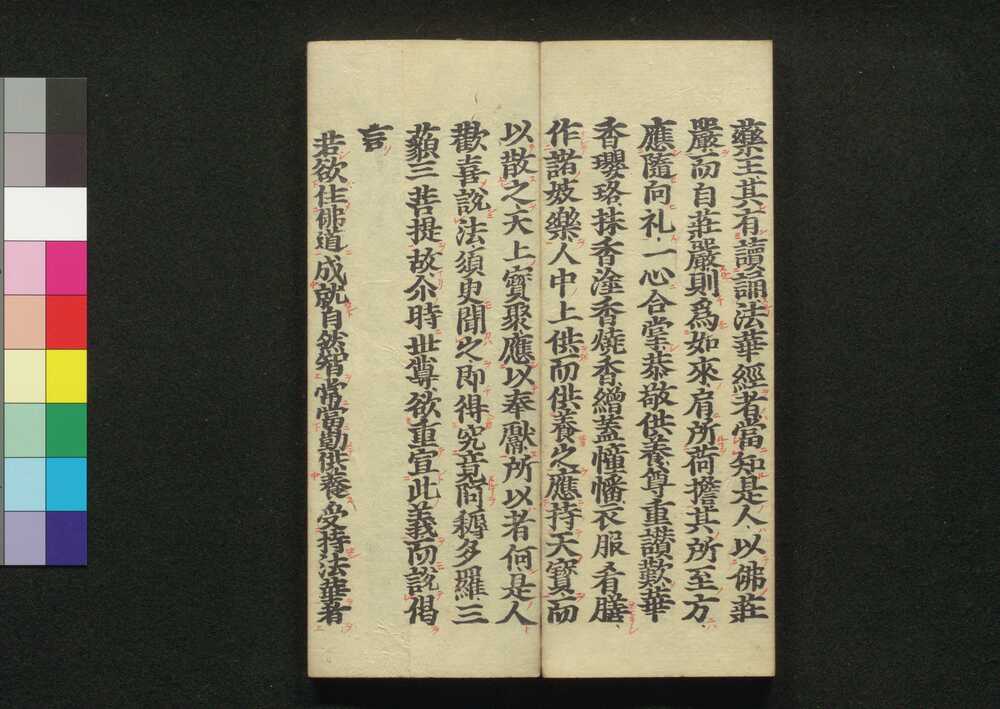 藥王其有讀誦法華經者當知是人以佛莊
嚴而自莊嚴則爲如來肩所荷擔其所至方
應隨向礼一心合掌恭敬供養尊重讃歎華
香瓔珞抹香塗香燒香繒蓋幢幡衣服肴膳
作諸妓樂人中上供而供養之應持天寶而
以散之天上寶聚應以奉獻所以者何是人
歡喜說法須臾聞之即得究竟阿耨多羅三
藐三菩提故尒時世尊欲重宣此義而說偈
言
若欲住佛道成就自然智常當勤供養受持法華者